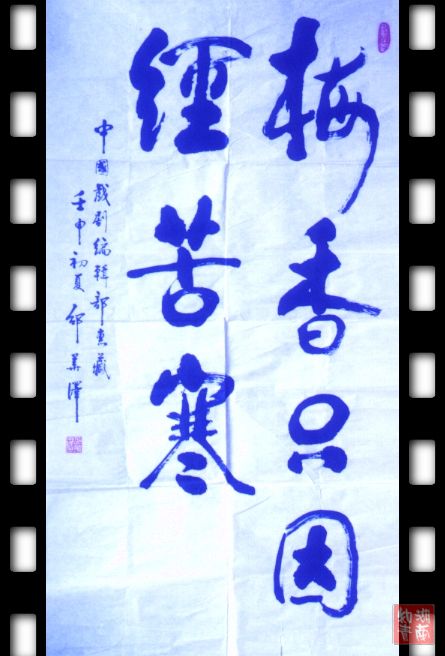 梅香只因
經苦寒
中國戲劇編輯部惠藏
壬申初夏 邵華澤